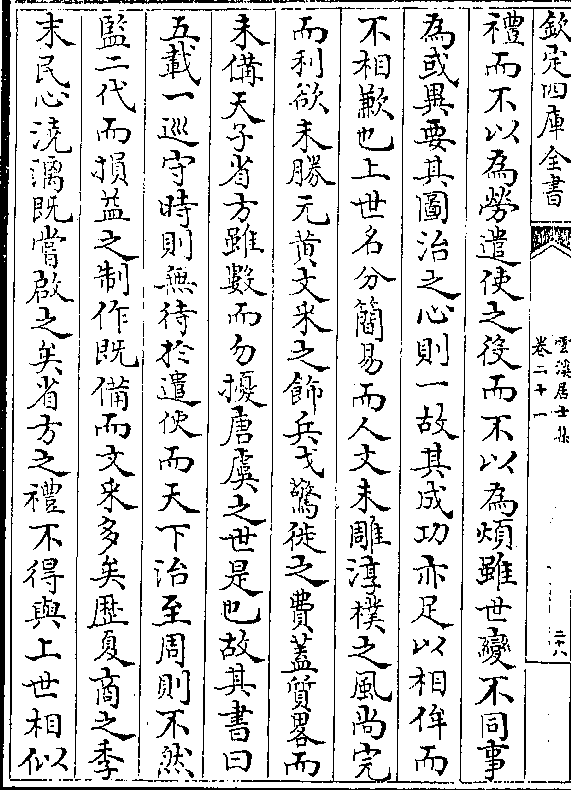 欽定四庫全書
雲溪居士集
卷二十一
二十八
禮而不以為勞遣使之役而不以為煩雖世變不同事
為或異要其圖治之心則一故其成功亦足以相侔而
不相歉也上世名分簡易而人文未雕淳樸之風尚完
而利欲未勝元黄文采之飾兵戈驚徙之費蓋質畧而
未備天子省方雖數而勿擾唐虞之世是也故其書曰
五載一巡守時則無待於遣使而天下治至周則不然
監二代而損益之制作既備而文采多矣歴夏商之季
末民心澆漓既嘗啟之矣省方之禮不得與上世相似